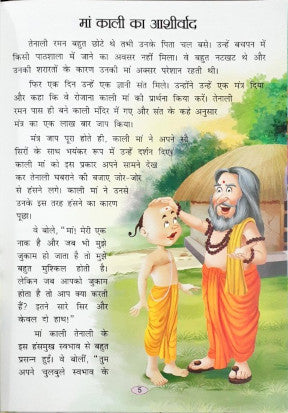 मां काली का आशीर्वाद
तेनाली रमन बहुत छोटे थे तभी उनके पिता चल बसे। उन्हें बचपन में
किसी पाठशाला में जाने का अवसर नहीं मिला। वे बहुत नटखट थे और
उनकी शरारतों के कारण उनकी मां अक्सर परेशान रहती थी।
फिर एक दिन उन्हें एक ज्ञानी संत मिले। उन्होंने उन्हें एक मंत्र दिया
और कहा कि वे रोजाना काली मां की प्रार्थना किया करें। तेनाली
रमन पास ही बने काली मंदिर में गए और संत के कहे अनुसार
मंत्र का एक लाख बार जाप किया।
मंत्र जाप पूरा होते ही, काली मां ने अपने सौ
सिरों के साथ भयंकर रूप में उन्हें दर्शन दिए।
काली मां को इस प्रकार अपने सामने देख
कर तेनाली घबराने की बजाए जोर-जोर
से हंसने लगे। काली मां ने उनसे
उनके इस तरह हंसने का कारण
पूछा।
वे बोले, "मां! मेरी एक
नाक है और जब भी मुझे
जुकाम हो जाता है तो मुझे
बहुत मुश्किल होती है।
लेकिन जब आपको जुकाम
होता है तो आप क्या करती
हैं? इतने सारे सिर और
केवल दो हाथ!"
मां काली तेनाली के
इस हंसमुख स्वभाव से बहुत
प्रसन्न हुईं। वे बोलीं, "तुम
अपने चुलबुले स्वभाव के
5